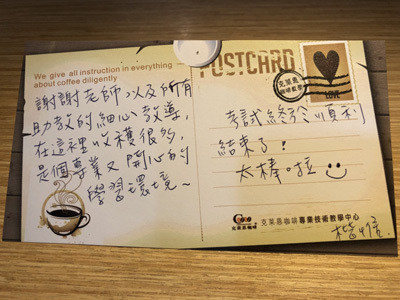 We give all instruction in everything
about coffee diligently
POSTCARD
克萊恩
咖啡教學
LOVE
謝謝老師以及所有
助教的細心教導,
在這裡收穫很多,
是個專業又開心的
學習環境~
考試終於順利
結束了!
太棒啦
克萊恩咖啡
克萊恩咖啡專業技術教學中心